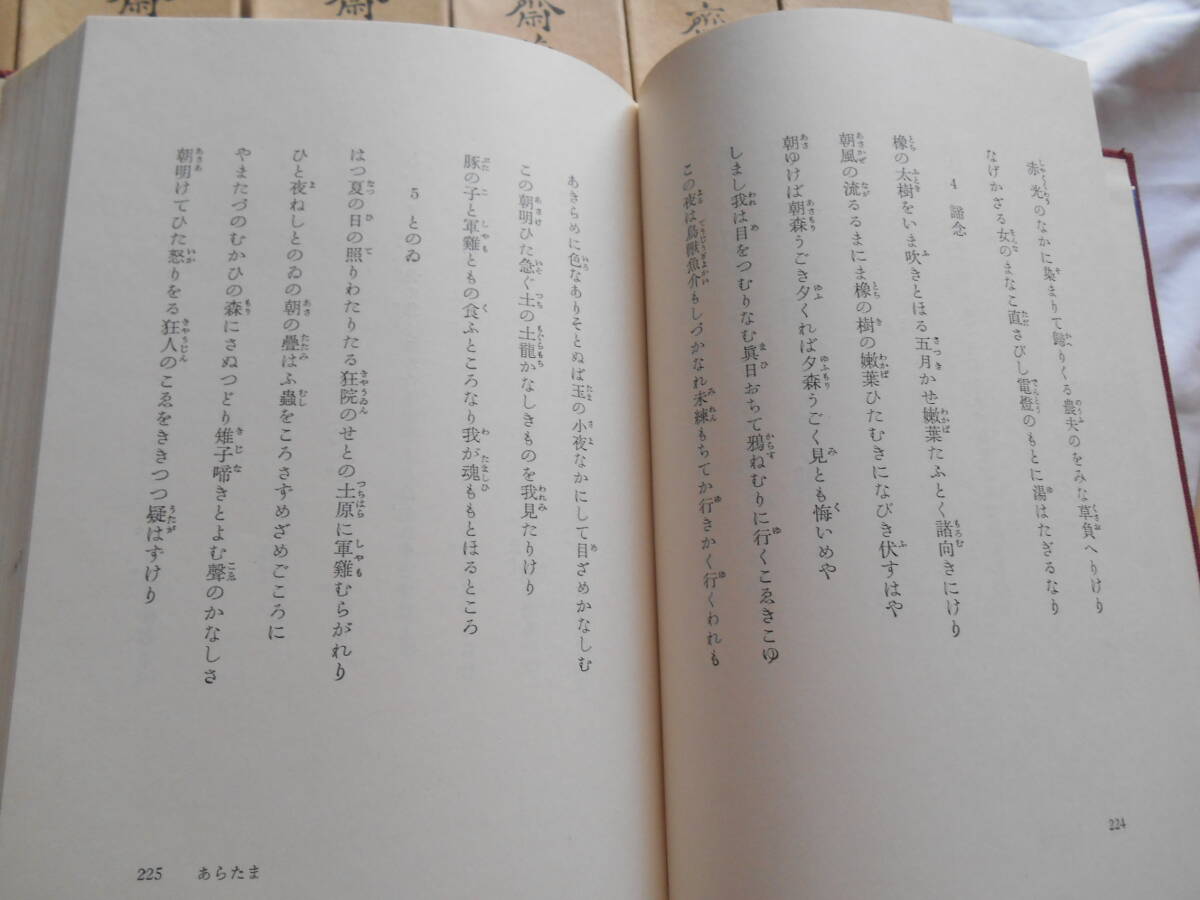 赤光のなかに染まりて歸りくる農夫のをみな草負へりけり
なげかざる女のまなこ直さびし電燈のもとに湯はたぎるなり
4 諦念
橡の太樹をいま吹きとほる五月かせ嫩葉たふとく諸向きにけり
朝風の流るるまにま橡の樹の嫩葉ひたむきになびき伏すはや
朝ゆけば朝森うごき夕くれば夕森うごく見とも悔いめや
しまし我は目をつむりなむ眞日おちて鴉ねむりに行くこゑきこゆ
この夜は鳥獸魚介もしづかなれ未練もちてか行きかく行くわれも
224
あきらめに色なありそとぬば玉の小夜なかにして目ざめかなしむ
この朝明ひた急ぐ土の土龍かなしきものを我見たりけり
豚の子と軍雞ともの食ふところなり我が魂ももとほるところ
5 とのゐ
はつ夏の日の照りわたりたる狂院のせとの土原に軍雞むらがれり
ひと夜ねしとのゐの朝の疊はふ蟲をころさずめざめごころに
やまたづのむかひの森にさぬつどり雉子啼きとよむ聲のかなしさ
朝明けてひた怒りをる狂人のこゑをききつつ疑はずけり
225 あらたま